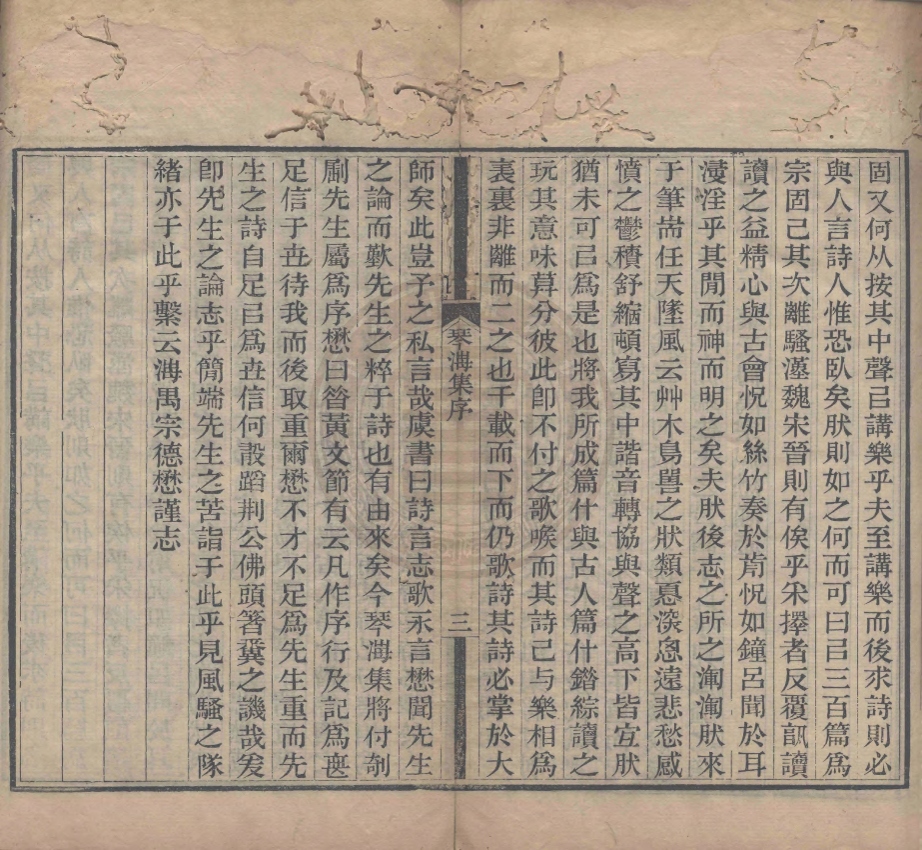 固又何从按其中聲㠯講樂乎夫至講樂而後求詩則必
與人言詩人惟恐臥矣肰則如之何而可曰㠯三百篇爲
宗固已其次離騷漢魏宋晉則有俟乎宷擇者反覆諷讀
讀之益精心與古會怳如絲竹奏於歬怳如鐘呂聞於耳
漫淫乎其閒而神而明之矣夫肰後志之所之洶洶肰來
于筆耑任天墜風云艸木鳥嘼之狀類憙深恖遠悲愁感
憤之鬱積舒縮頓寫其中諧音轉協與聲之高下皆宜肰
猶未可㠯爲是也將我所成篇什與古人篇什鍇綜讀之
玩其意味算分彼此卽不付之歌喉而其詩已与樂相爲
表裏非離而二之也千載而下而仍歌詩其詩必掌於大
琴海集序
三
師矣此豈予之私言哉虞書曰詩言志歌永言懋聞先生
之論而歎先生之粹于詩也有由來矣今琴海集將付剞
劂先生屬爲序懋曰昝黃文節有云凡作序行及記爲喪
足信于丗待我而後取重爾懋不才不足爲先生重而先
生之詩自足㠯爲丗信何敢蹈荆公佛頭箸糞之譏哉爰
卽先生之論志乎簡端先生之苦詣于此乎見風騷之隊
緒亦于此乎繫云海禺宗德懋謹志